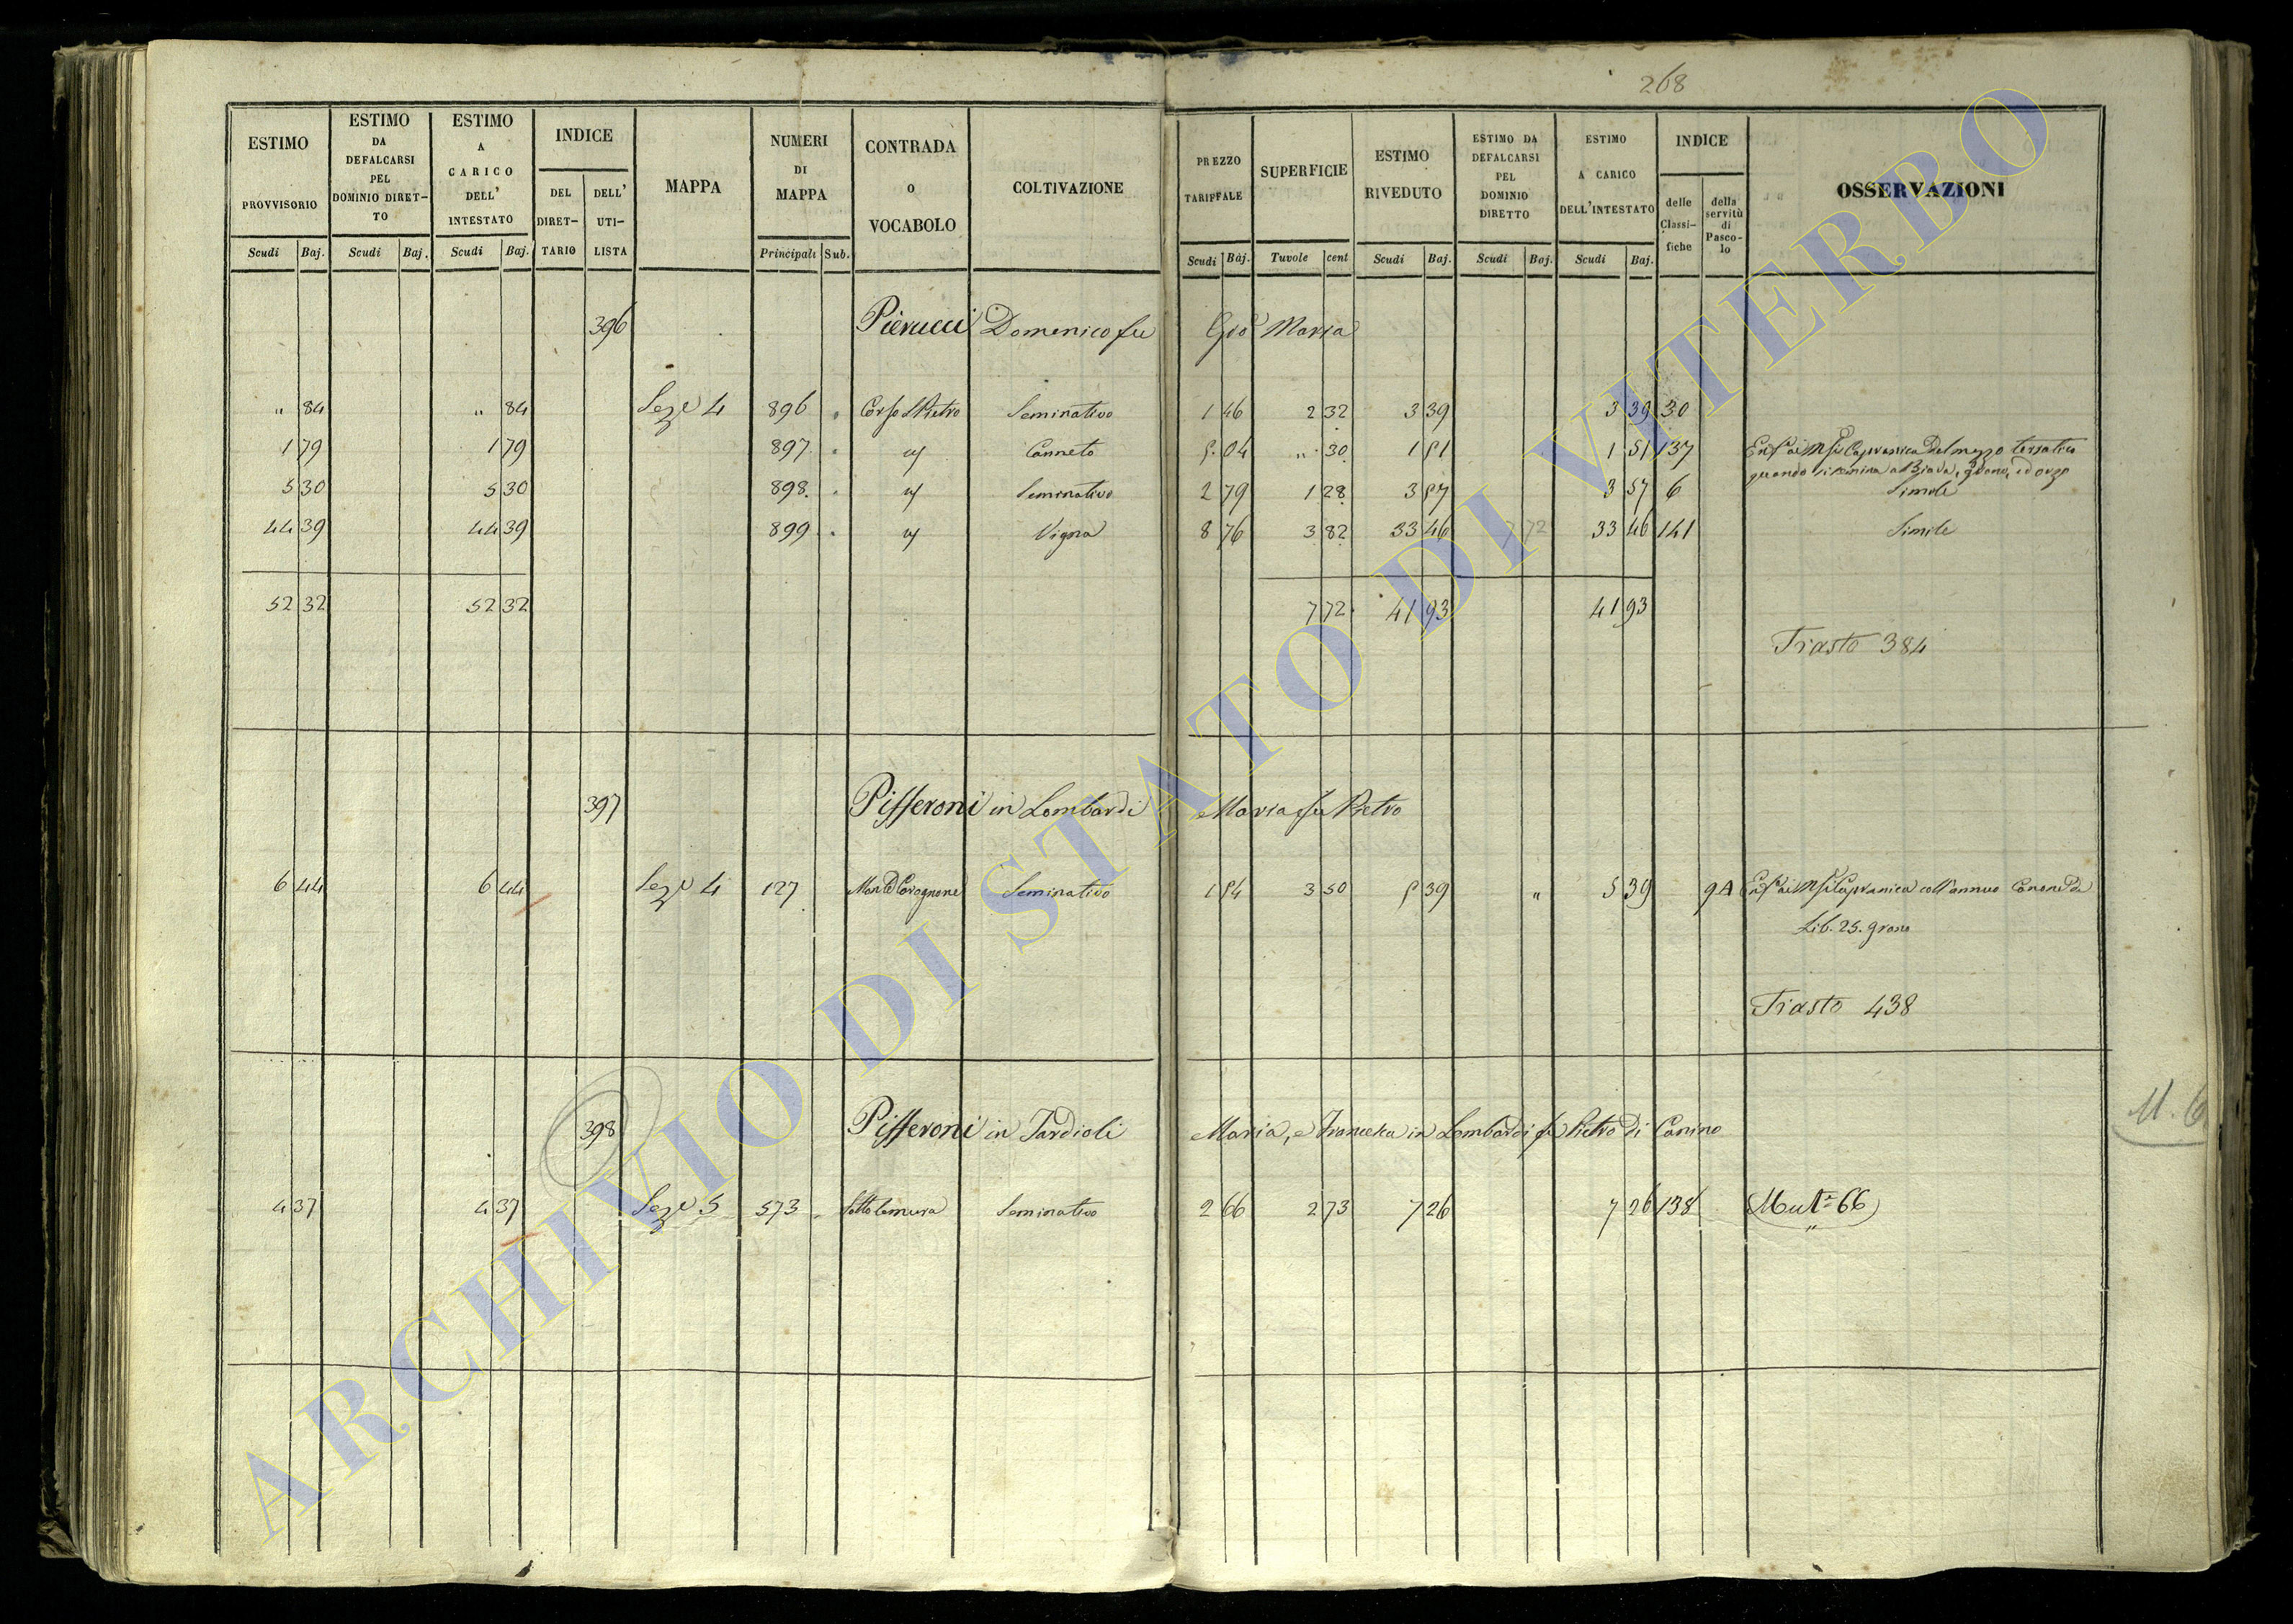 268
ESTIMO PROVVISORIO Scudi Baj.
ESTIMO DA DEFALCARSI PEL DOMINIO DIRETTO Scudi Baj.
ESTIMO A CARICO DELL' INTESTATO Scudi Baj.
INDICE DEL DIRETTARIO DELL' UTILISTA
MAPPA
NUMERI DI MAPPA Principali Sub.
CONTRADA O VOCABOLO
COLTIVAZIONE
PREZZO TARIFFALE Scudi Baj.
SUPERFICIE Tavole cent
ESTIMO RIVEDUTO Scudi Baj.
ESTIMO DA DEFALCARSI PEL DOMINIO DIRETTO Scudi Baj.
ESTIMO A CARICO DELL'INTESTATO Scudi Baj.
INDICE delle Classifiche della servitù di Pascolo
OSSERVAZIONI
396 Pierucci Domenico fu Gio Maria
" 84 " 84 Sez.e 4 896 " Corso S Pietro Seminativo 1 46 2 32 3 39 3 39 30
1 79 1 79 897 " Canneto 5 04 " 30 1 51 1 51 137 Capranica Del mezzo terratico
quando si semina a Biada, grano, ed orzo
5 30 5 30 898 " Seminativo 2 79 1 28 3 57 3 57 6 Simile
44 39 44 39 899 " Vigna 8 76 3 82 33 46 7 72 33 46 141 Simile
52 32 52 32 7 72 41 93 41 93
Trasto 384
397 Pifferoni in Lombardi Maria fu Pietro
6 44 6 44 Sez.e 4 127 Seminativo 1 54 3 50 5 39 " 5 39 9A Capranica coll'annuo Canone Di
Lib. 25. grano
Trasto 438
M. 6
398 Pifferoni in Tardioli Maria, e Francesca in Lombardi fu Pietro Di Canino
4 37 4 37 Sez.e 5 573 Sotto le mura Seminativo 2 66 2 73 7 26 7 26 138 Mut.e 66
ARCHIVIO DI STATO DI VITERBO